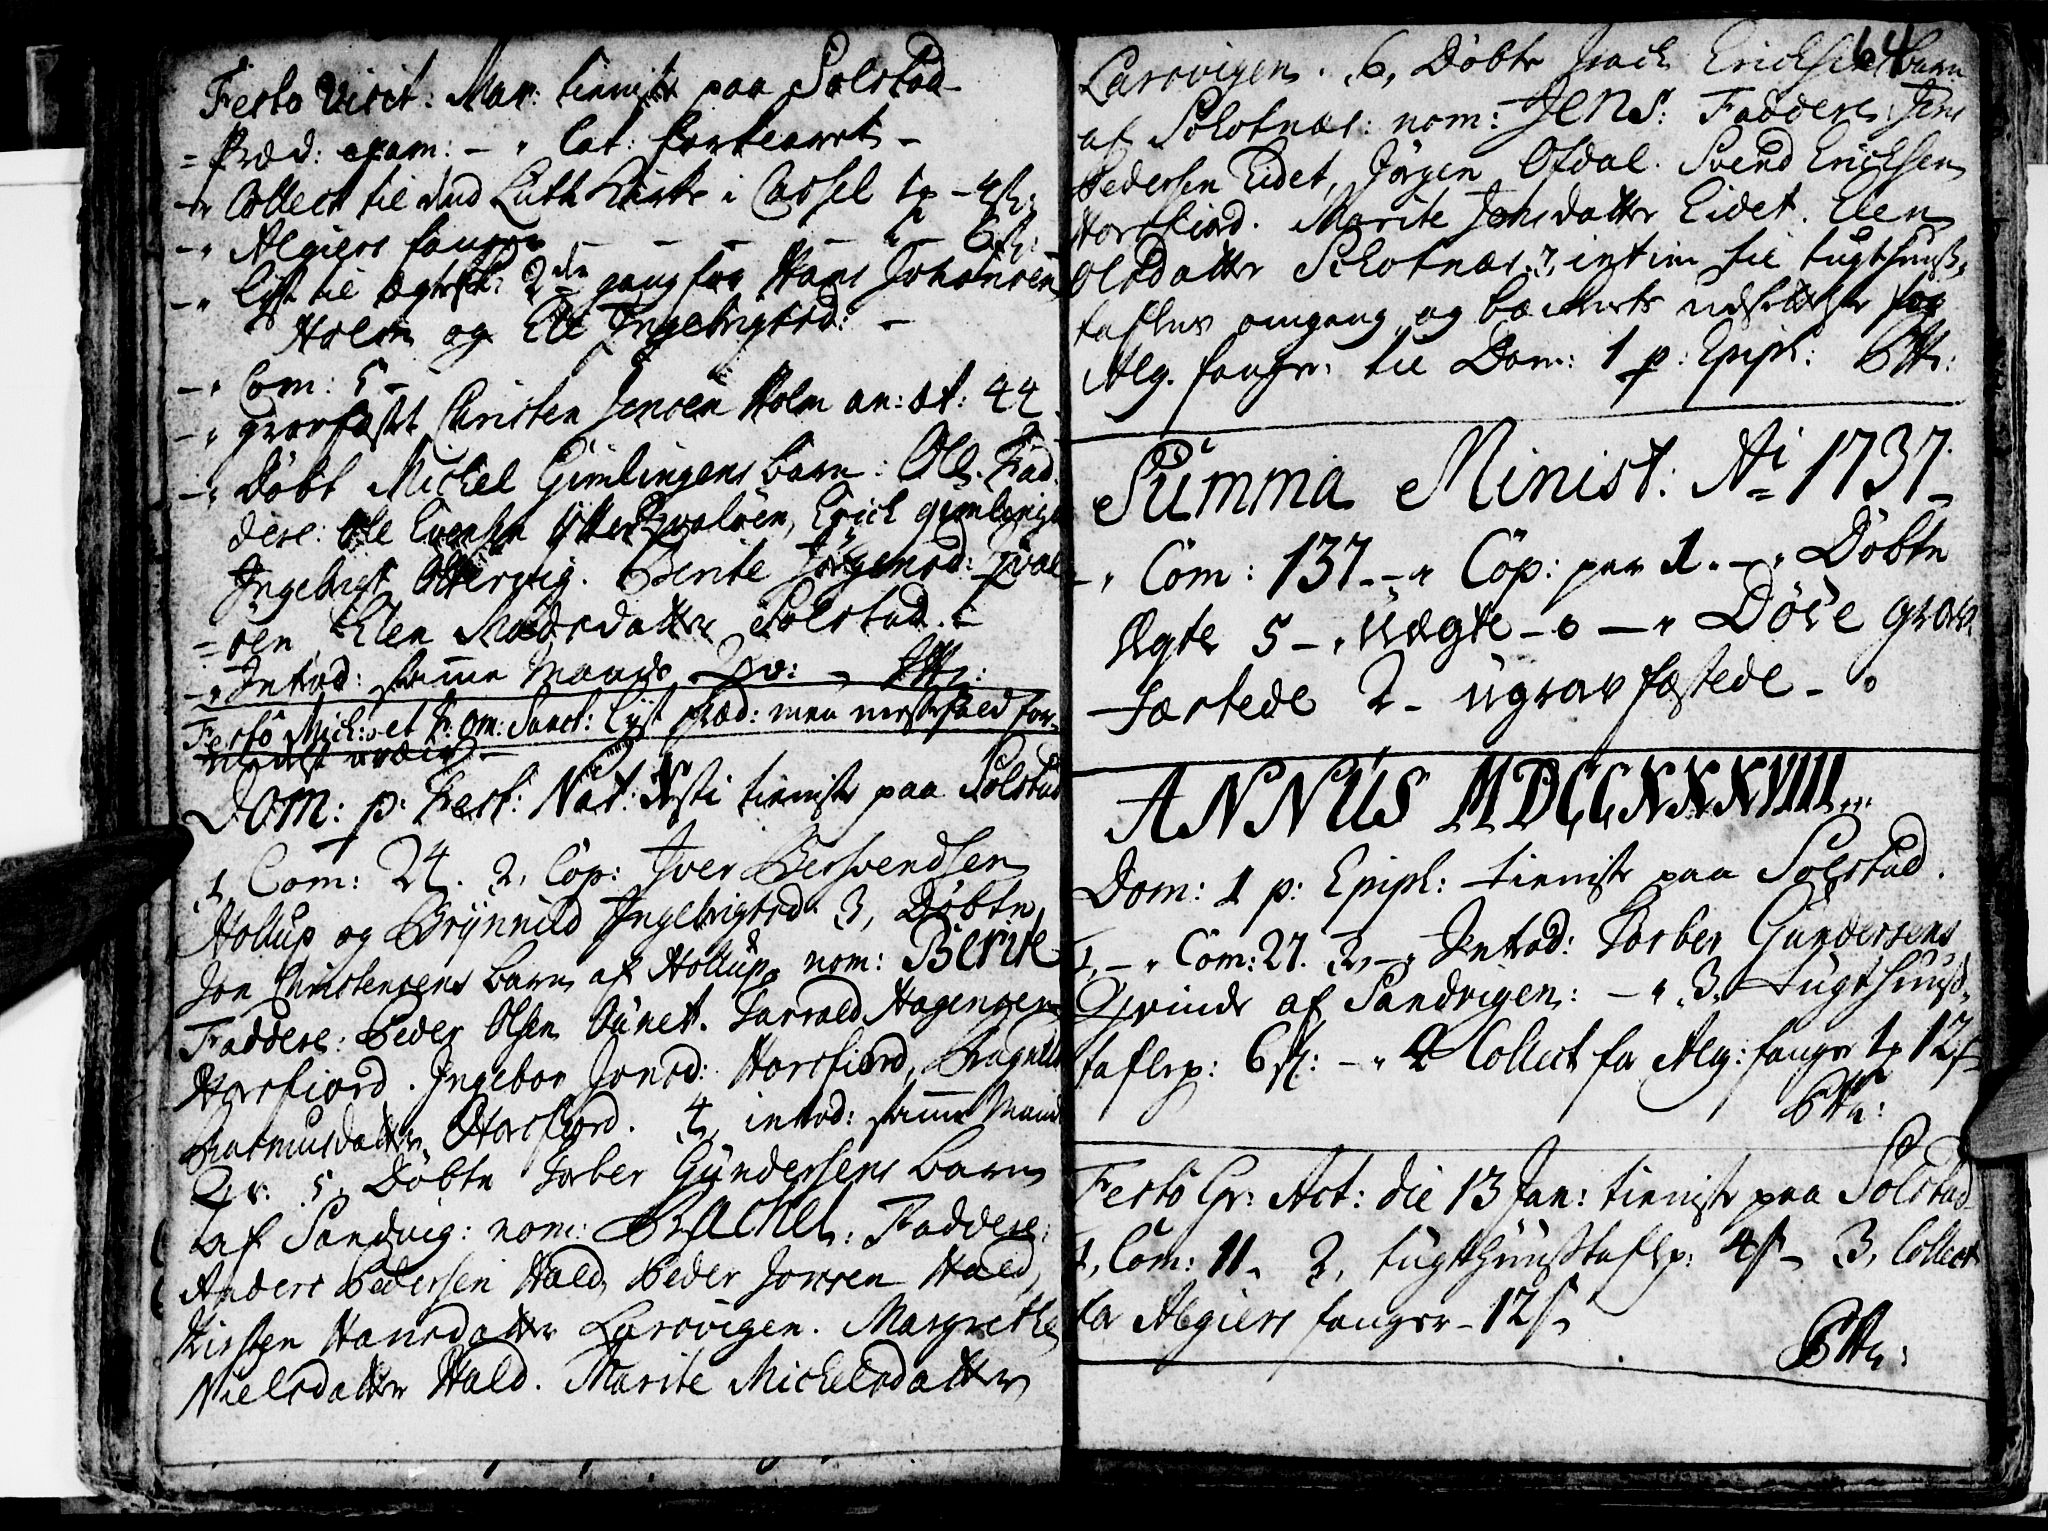 Festo Visit: Mar: tieniste paa Solstad
= Præd: exam: – " Cat: forklaret –
–" Collect til dend Luth Kirke i Cassel – 4 s:
–" Algiers fanger – – – – – 6 s:
–" lyst til ægtesk: 2den gang for Hans Johansen
Holm og Ele Ingebrigtsd: –
–" Com: 5 –
–" gravfæstet Christen Jensen Holm an: æt: 44
–" Døbt Michel Gimlingens barn: Ole. Fad
dere: Ole Evensen Qvaløen, Erich gimlingen
Ingebrigt Otterviig. Berite Jørgensd: Qval
= øen, Elen Madsdatter Solstad. –
–" Introd: samme Mands Qv: –
Festo Mich: et F: Om: Sanct: lyst Præd: men
Dom: p: Fest: Nat: Xsti tieniste paa Solstad
1, Com: 24. 2, Cop: Iver Bersvendsen
Hollup og Brynnild Ingebrigtsd. 3, Døbte
Jon Christensens barn af Hollup nom: Berite
Faddere: Peder Olsen Øünet. Tarrald Hagensen
Horsfiord. Ingebor Jonsd: Horsfiord, Bragnild
Rasmusdatter Horsfiord. 4, introd: samme Mands
Qv: 5, Døbte Torber Gündersens barn
af Sandvig: nom: Rachel: Faddere:
Anders Pedersen Hald, Peder Jonsen Hald,
Kirsten Hansdatter Larsvigen. Margrethe
Nielsdatter Hald. Marite Michelsdatter
64
Larsvigen. 6, Døbte Isach Erichsens barn
af Solotnæs: nom: JENS: Faddere: Jens
Pedersen Eidet, Jørgen Ofdal. Svend Erichsen
Horsfiord. Marite Jonsdatter Eidet. Elen
Olsdatter Solotnæs. 7, intim til tugthuus-
taflens omgang, og beckens udsættelse for
Alg. fanger til Dom: 1 p: Epiph:
Summa Minist: Ai 1737
–" Com: 137 –" Cop: par 1. –" Døbte
Ægte 5 –" Uægte – 0 –" Døde grav
fæstede 2 – ugravfæstede – 0
ANNUS MDCCXXXVIII
Dom: 1 p: Epiph: tieniste paa Solstad.
1, –" Com: 27. 2, –" Introd: Torber Gündersens
Qvinde af Sandvigen: –" 3, Tugthuus-
taflep: 6 s: –" 4 Collect for Alg: fanger 12 s
Festo Cir: Act: die 13 Jan: tieniste paa Solstad
1, Com: 11. 2, tugthüüstaflep: 4 s – 3, Collect
for Algiers fanger – 12 s